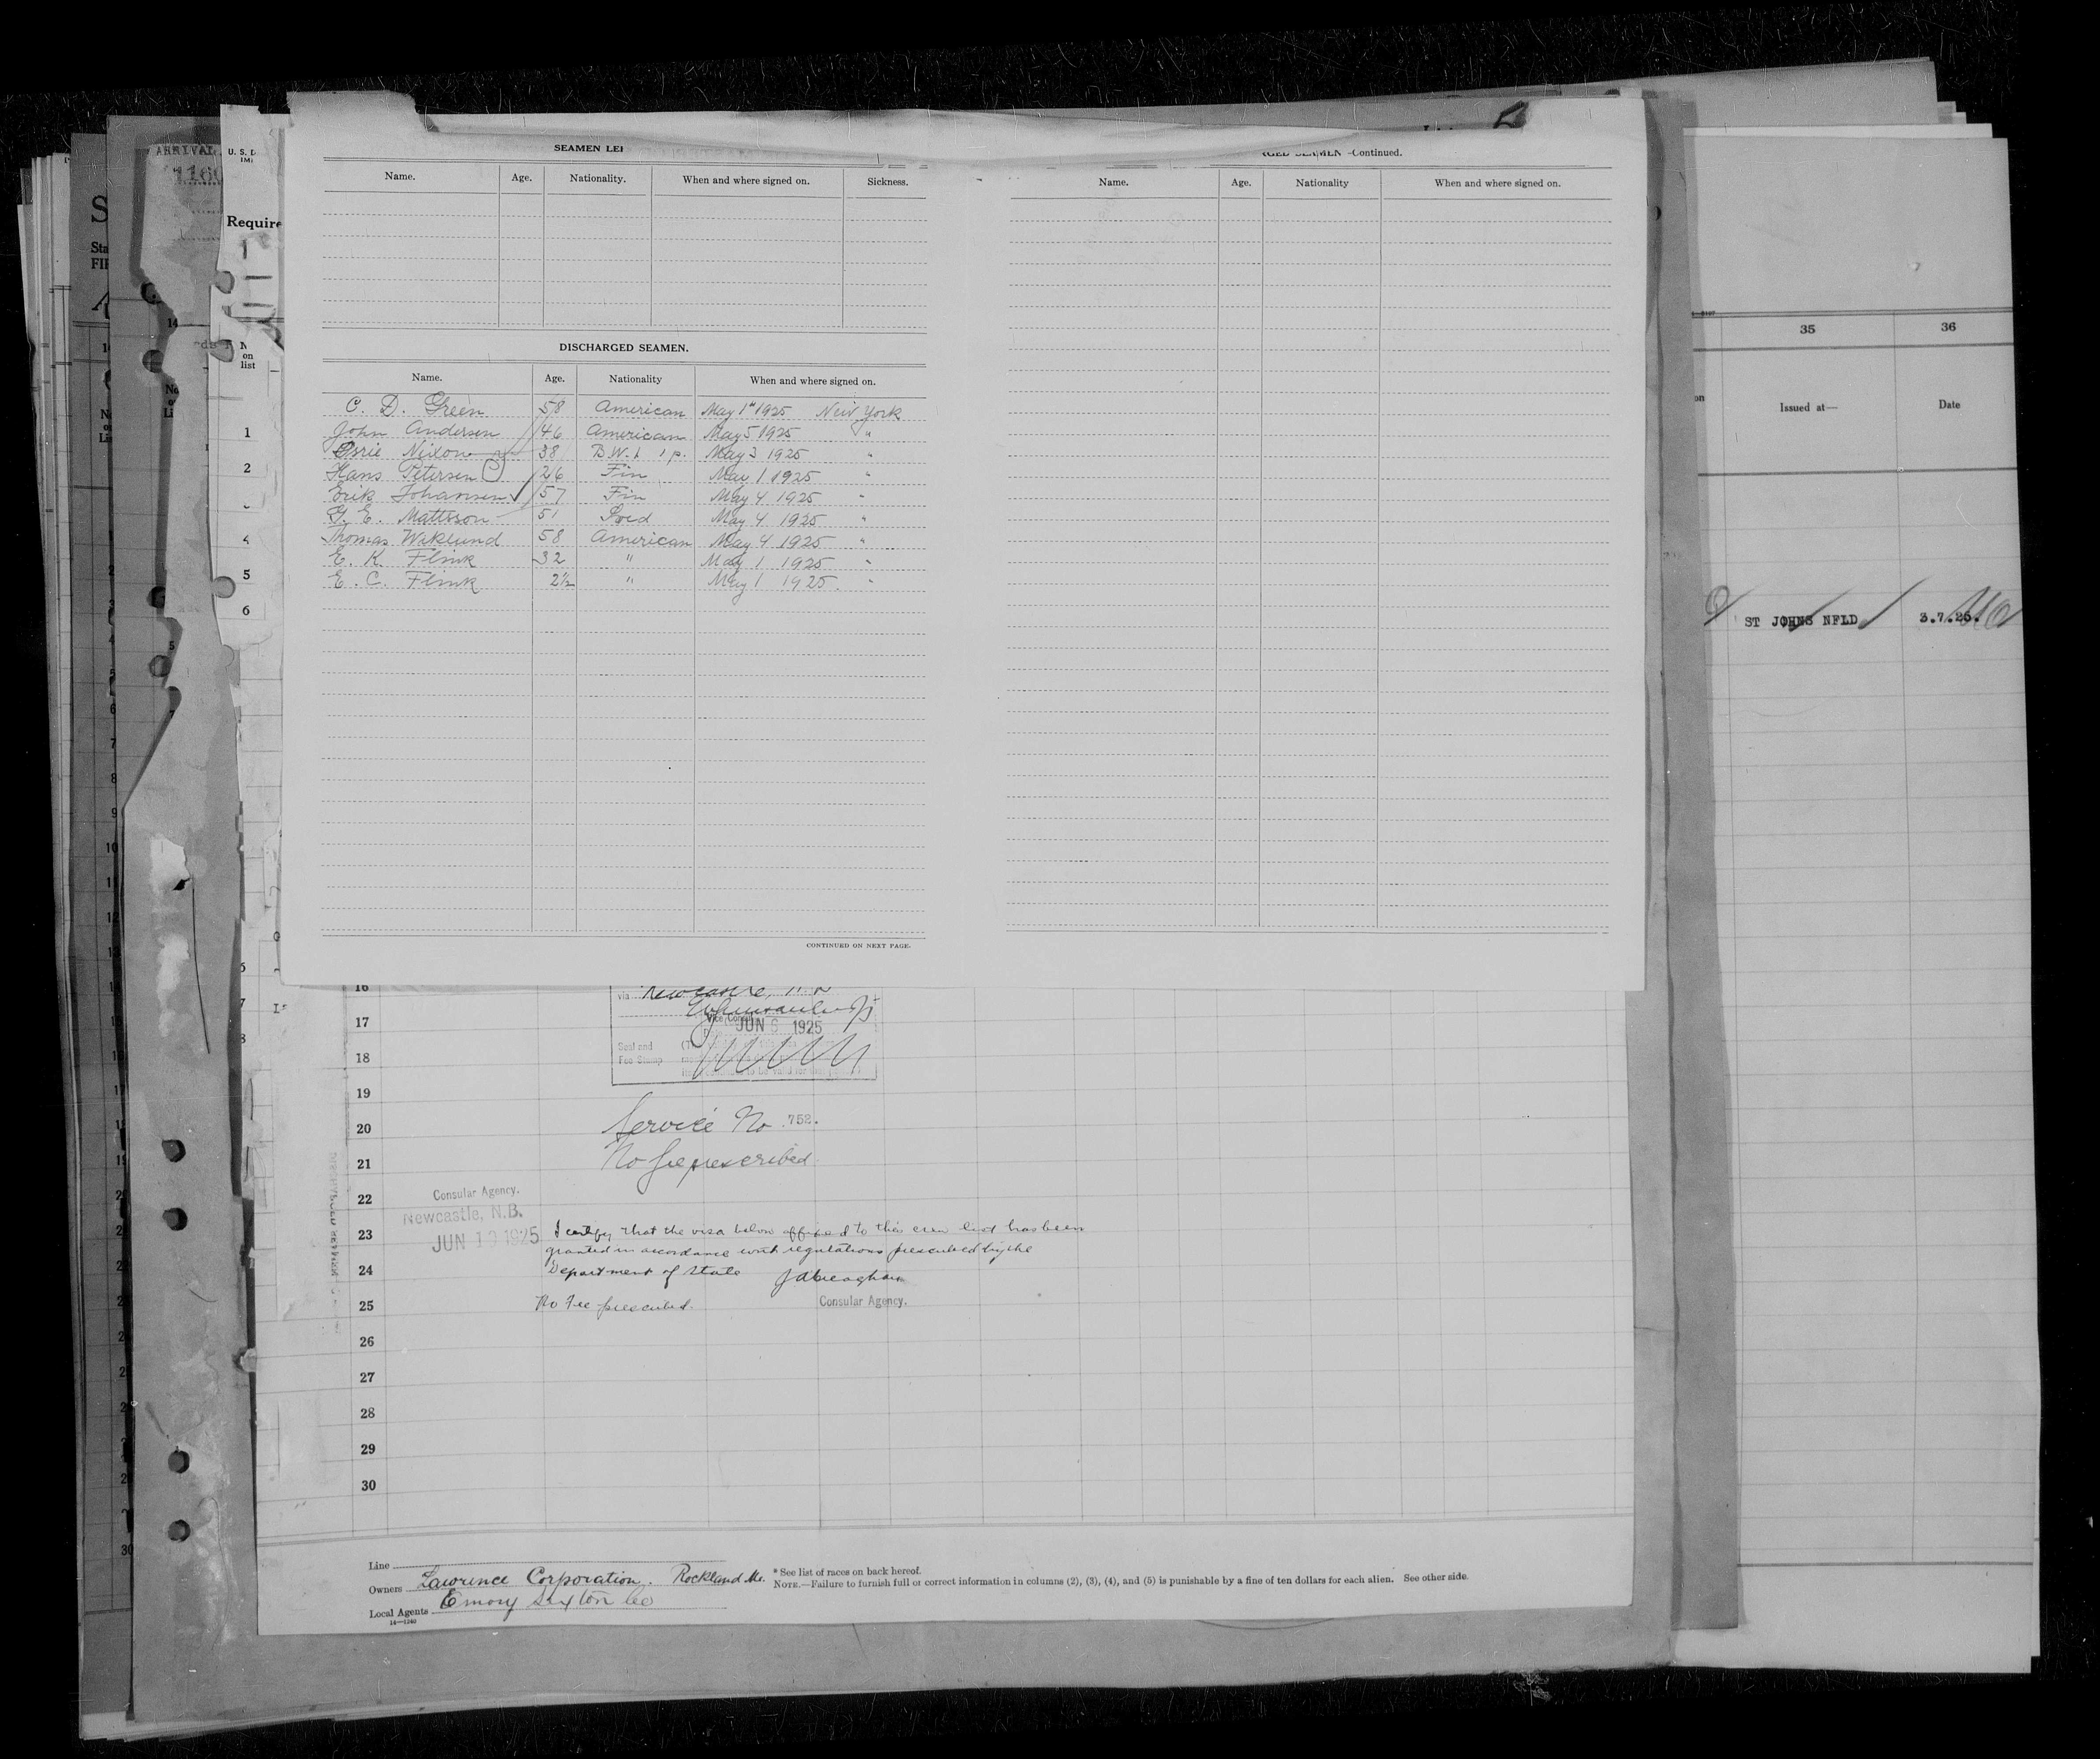 SEAMEN LE
GED SEAMEN -Continued.
Name. Age. Nationality. When and where signed on. Sickness.
Name. Age. Nationality When and where signed on.
DISCHARGED SEAMEN.
Name. Age. Nationality When and where signed on.
C. D. Green 58 American May 1st 1925 New York
John Andersen 46 American May 5 1925 "
Nixon 38 B.W.I. May 3 1925 "
Hans Petersen 26 Fin May 1 1925 "
Erik Johansen 57 Fin May 4 1925 "
Mattsson 51 Swed May 4 1925 "
Thomas Wiklund 58 American May 4 1925 "
E. K. Flink 32 " May 1 1925 "
E. C. Flink 2½ " May 1 1925. "
CONTINUED ON NEXT PAGE.
ARRIVAL
U. S. D
IM
Require
N
on
list
1
2
4
5
6
35 36
Issued at— Date
ST JOHNS NFLD 3.7.26.
16
via Newcastle, N.B.
17
Vice Consul
JUN 6 1925
18
Seal and
Fee Stamp
19
20 Service No 758.
21 No fee prescribed
22 Consular Agency.
Newcastle, N.B.
23 I certify that the visa below affixed to this crew list has been
JUN 13 1925
granted in accordance with regulations prescribed by the
24 Department of State
25 No Fee prescribed. Consular Agency.
26
27
28
29
30
Line
Owners Lawrence Corporation. Rockland Me.
Local Agents Emory Sexton Co
14—1240
* See list of races on back hereof.
NOTE.—Failure to furnish full or correct information in columns (2), (3), (4), and (5) is punishable by a fine of ten dollars for each alien. See other side.